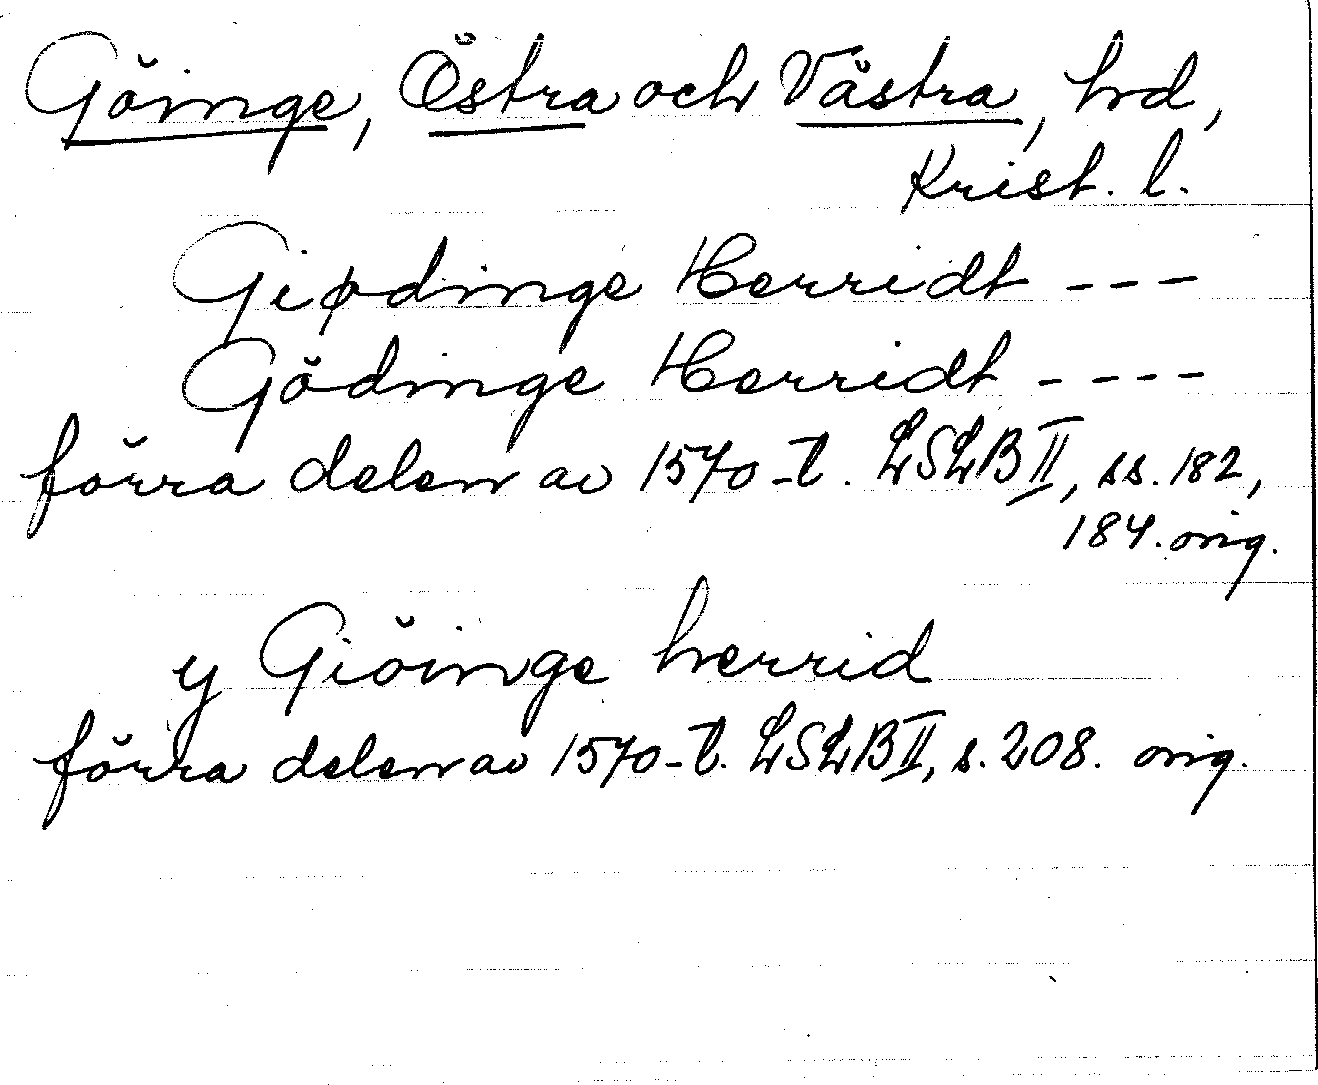 Göinge, Östra och Västra, hd,
Krist. l.
Giødinge Herridt ---
Gödinge Herridt ----
förra delen av 1570-t. LSLB II, ss. 182,
184. orig.
y Giöinge herrid
förra delen av 1570-t. LSLB II, s. 208. orig.